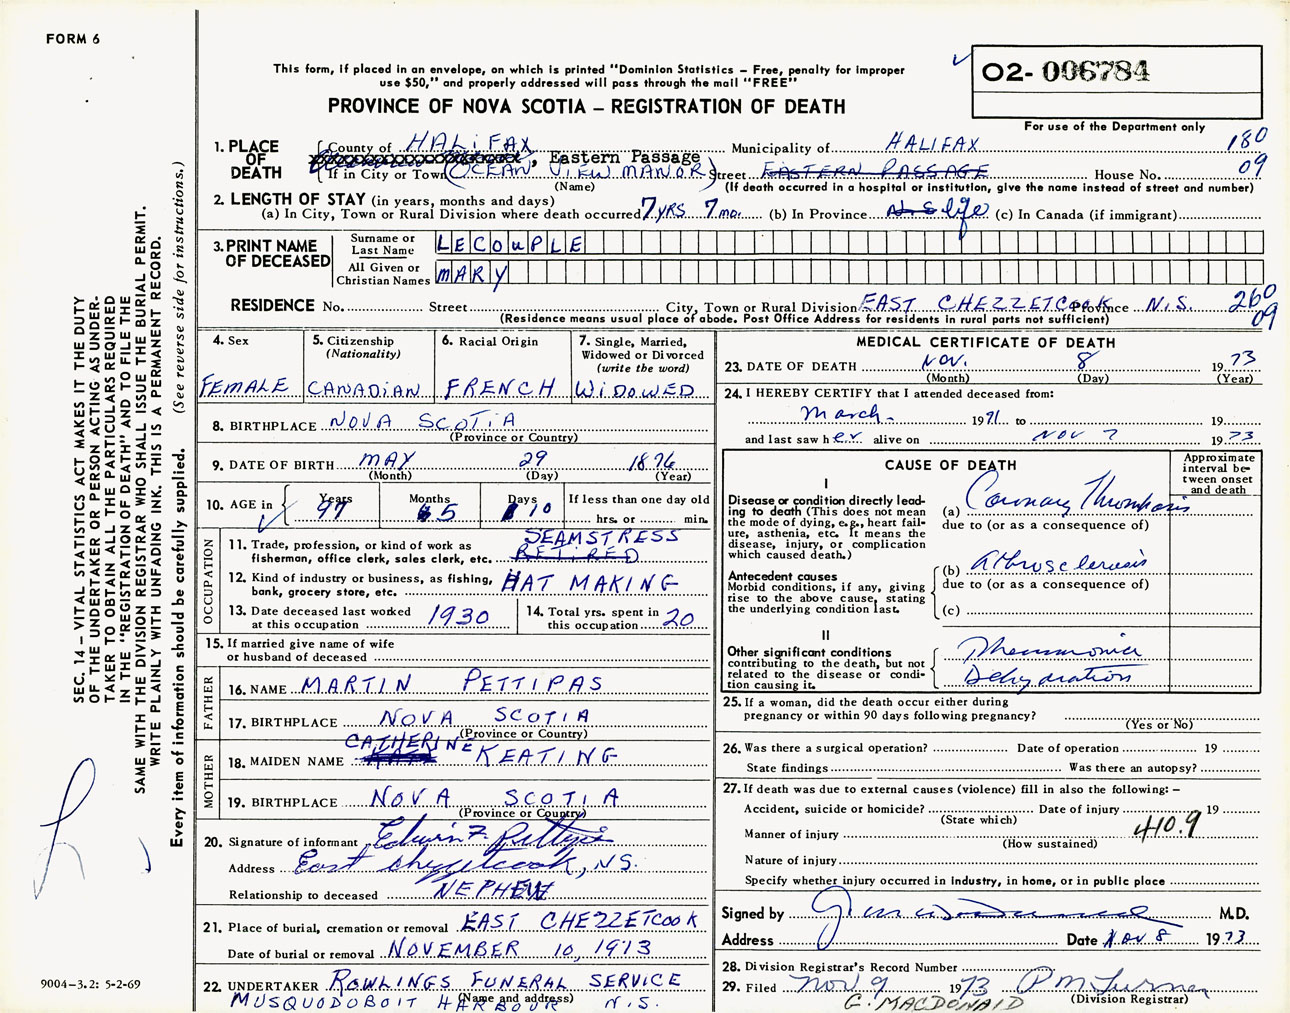 FORM 6
This form, if placed in an envelope, on which is printed "Dominion Statistics – Free, penalty for improper
use $50," and properly addressed will pass through the mail "FREE"
02- 006784
For use of the Department only
PROVINCE OF NOVA SCOTIA – REGISTRATION OF DEATH
SEC. 14 – VITAL STATISTICS ACT MAKES IT THE DUTY
OF THE UNDERTAKER OR PERSON ACTING AS UNDER-
TAKER TO OBTAIN ALL THE PARTICULARS REQUIRED
IN THE "REGISTRATION OF DEATH" AND TO FILE THE
SAME WITH THE DIVISION REGISTRAR WHO SHALL ISSUE THE BURIAL PERMIT.
WRITE PLAINLY WITH UNFADING INK. THIS IS A PERMANENT RECORD.
Every item of information should be carefully supplied. (See reverse side for instructions.)
1. PLACE OF DEATH
County of HALIFAX Municipality of HALIFAX 180
, Eastern Passage
If in City or Town (OCEAN VIEW MANOR) Street EASTERN PASSAGE House No. 09
(Name) (If death occurred in a hospital or institution, give the name instead of street and number)
2. LENGTH OF STAY (in years, months and days)
(a) In City, Town or Rural Division where death occurred 7 YRS 7 mo. (b) In Province N S life (c) In Canada (if immigrant)
3. PRINT NAME OF DECEASED
Surname or Last Name LECOUPLE
All Given or Christian Names MARY
RESIDENCE No. Street City, Town or Rural Division EAST CHEZZETCOOK Province N.S. 260
(Residence means usual place of abode. Post Office Address for residents in rural parts not sufficient) 09
4. Sex FEMALE
5. Citizenship (Nationality) CANADIAN
6. Racial Origin FRENCH
7. Single, Married, Widowed or Divorced (write the word) WIDOWED
8. BIRTHPLACE NOVA SCOTIA
(Province or Country)
9. DATE OF BIRTH MAY 29 1876
(Month) (Day) (Year)
10. AGE in Years 97 Months 5 Days 10 If less than one day old
hrs. or min.
OCCUPATION
11. Trade, profession, or kind of work as SEAMSTRESS
fisherman, office clerk, sales clerk, etc. RETIRED
12. Kind of industry or business, as fishing, HAT MAKING
bank, grocery store, etc.
13. Date deceased last worked at this occupation 1930
14. Total yrs. spent in this occupation 20
15. If married give name of wife
or husband of deceased
FATHER
16. NAME MARTIN PETTIPAS
17. BIRTHPLACE NOVA SCOTIA
(Province or Country)
MOTHER
18. MAIDEN NAME CATHERINE KEATING
19. BIRTHPLACE NOVA SCOTIA
(Province or Country)
20. Signature of informant Edwin F. Pettipas
Address East Chezzetcook, N.S.
Relationship to deceased NEPHEW
21. Place of burial, cremation or removal EAST CHEZZETCOOK
Date of burial or removal NOVEMBER 10, 1973
22. UNDERTAKER ROWLINGS FUNERAL SERVICE
(Name and address)
MUSQUODOBOIT HARBOUR N.S.
9004–3.2: 5-2-69
MEDICAL CERTIFICATE OF DEATH
23. DATE OF DEATH NOV. 8 1973
(Month) (Day) (Year)
24. I HEREBY CERTIFY that I attended deceased from:
March 1971 to 19
and last saw her alive on NOV 7 1973
CAUSE OF DEATH
Approximate interval between onset and death
I
Disease or condition directly lead-
ing to death (This does not mean
the mode of dying, e.g., heart fail-
ure, asthenia, etc. It means the
disease, injury, or complication
which caused death.)
(a) Coronary Thrombosis
due to (or as a consequence of)
Antecedent causes
Morbid conditions, if any, giving
rise to the above cause, stating
the underlying condition last.
(b) Atherosclerosis
due to (or as a consequence of)
(c)
II
Other significant conditions
contributing to the death, but not
related to the disease or condi-
tion causing it.
Pneumonia
Dehydration
25. If a woman, did the death occur either during
pregnancy or within 90 days following pregnancy?
(Yes or No)
26. Was there a surgical operation? Date of operation 19
State findings Was there an autopsy?
27. If death was due to external causes (violence) fill in also the following: –
Accident, suicide or homicide? Date of injury 19
(State which)
Manner of injury 410.9
(How sustained)
Nature of injury
Specify whether injury occurred in industry, in home, or in public place
Signed by M.D.
Address Date Nov 8 1973
28. Division Registrar's Record Number
29. Filed Nov 9 1973 P M Turner
(Division Registrar)
G. MACDONALD